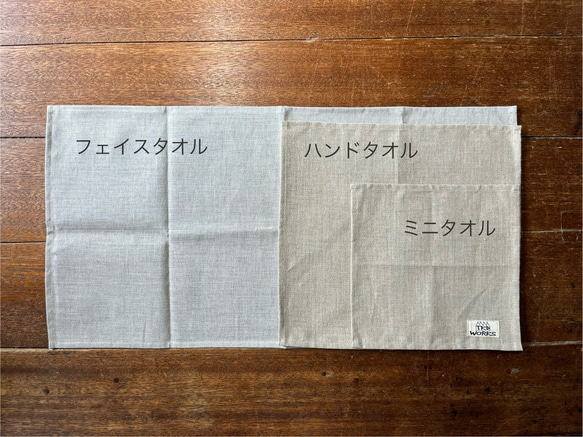 フェイスタオル
ハンドタオル
ミニタオル
WORKS